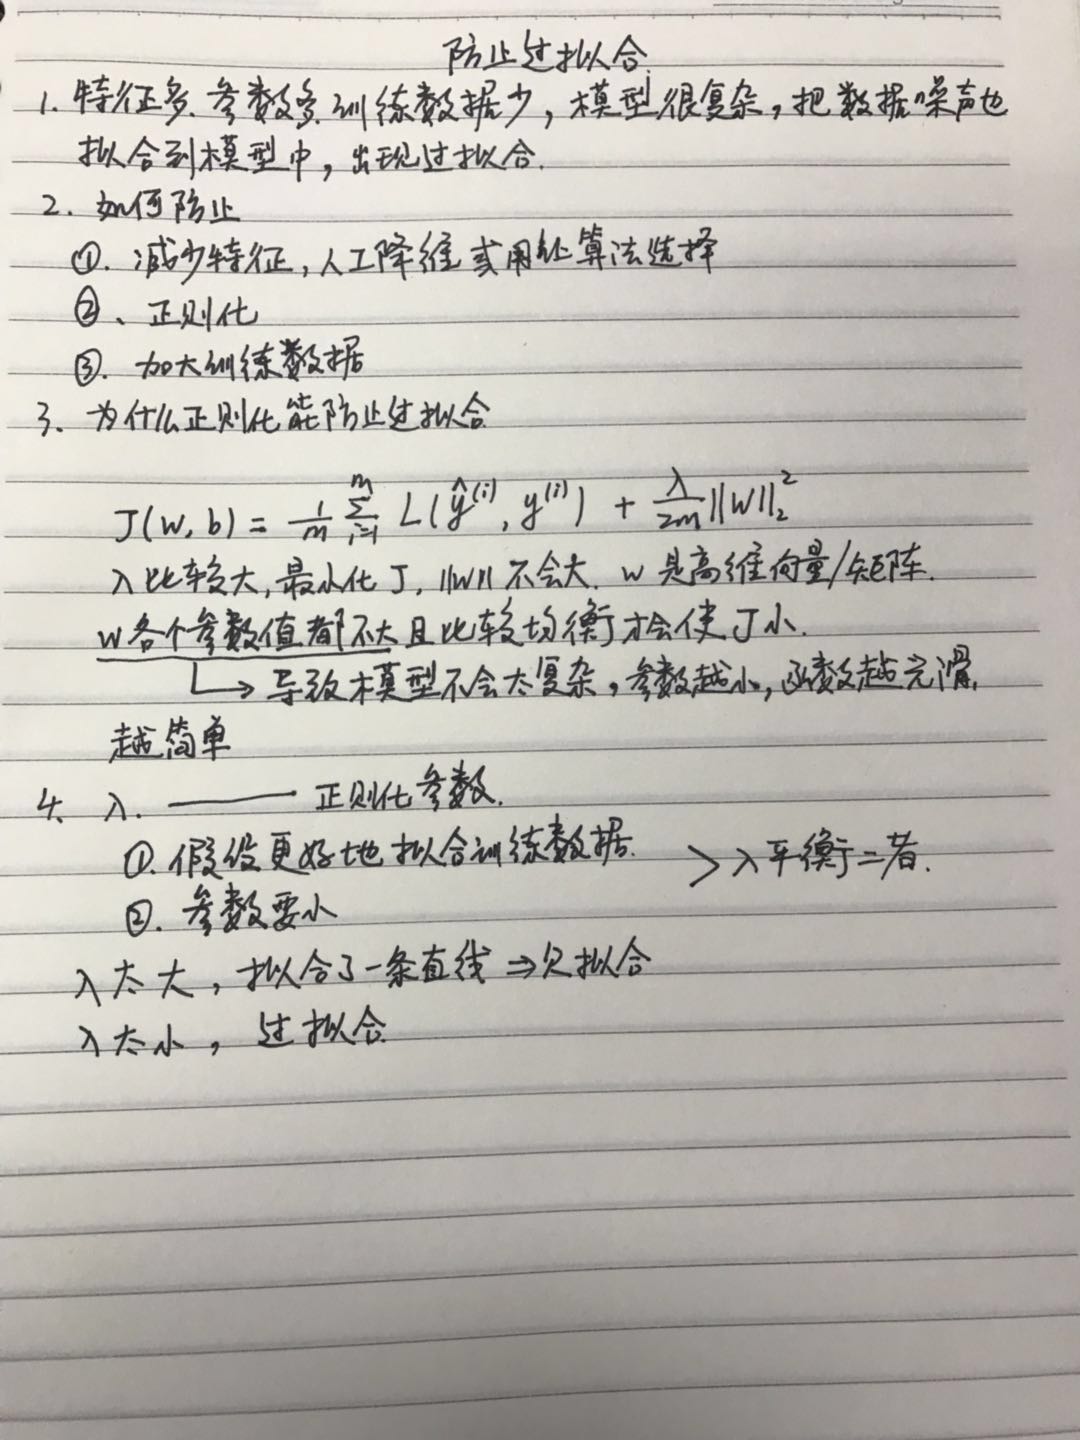 防止过拟合.
1. 特征多、参数多、训练数据少，模型很复杂，把数据噪声也
拟合到模型中，出现过拟合.
2. 如何防止
①. 减少特征，人工降维或用些算法选择
②、正则化
③. 加大训练数据
3. 为什么正则化能防止过拟合
J(w, b) = 1/m Σ_{i=1}^{m} L(ŷ^{(i)}, y^{(i)}) + λ/2m ||W||₂²
λ比较大，最小化J, ||W||不会大. w是高维向量/矩阵.
w各个参数值都不大且比较均衡才会使J小.
↳ 导致模型不会太复杂，参数越小，函数越光滑,
越简单
4. λ. —— 正则化参数.
①. 假设更好地拟合训练数据. > λ平衡二者.
②. 参数要小
λ太大，拟合了一条直线 ⇒ 欠拟合
λ太小，过拟合.